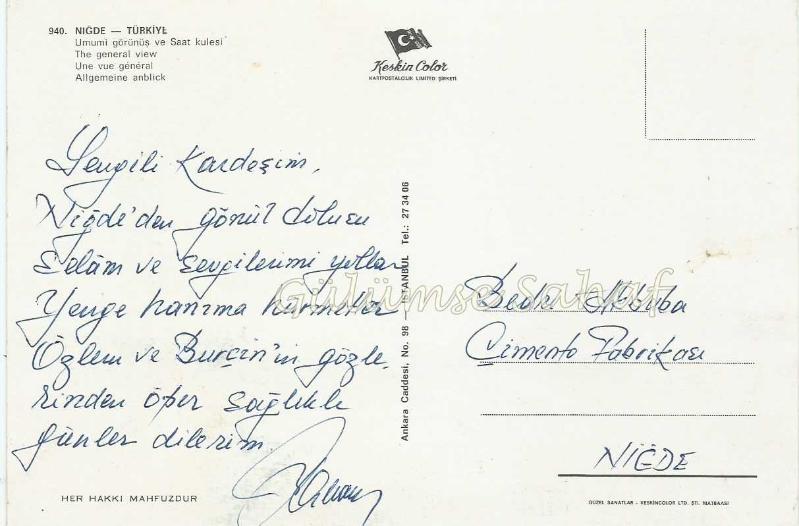 940. NİĞDE — TÜRKİYE
Umumi görünüş ve Saat kulesi
The general view
Une vue général
Allgemeine anblick
Keskin Color
KARTPOSTALCILIK LIMITED ŞIRKETI
Sevgili Kardeşim,
Niğde'den gönül dolusu
selâm ve sevgilerimi yollar
Yenge hanıma hürmetler
Özlem ve Burçin'in gözle-
rinden öper sağlıklı
günler dilerim.
HER HAKKI MAHFUZDUR
Ankara Caddesi, No. 98 İSTANBUL Tel.: 27 34 06
Gülümse Sahaf
Çimento Fabrikası
NİĞDE
GÜZEL SANATLAR - KESKINCOLOR LTD. ŞTI. MATBAASI